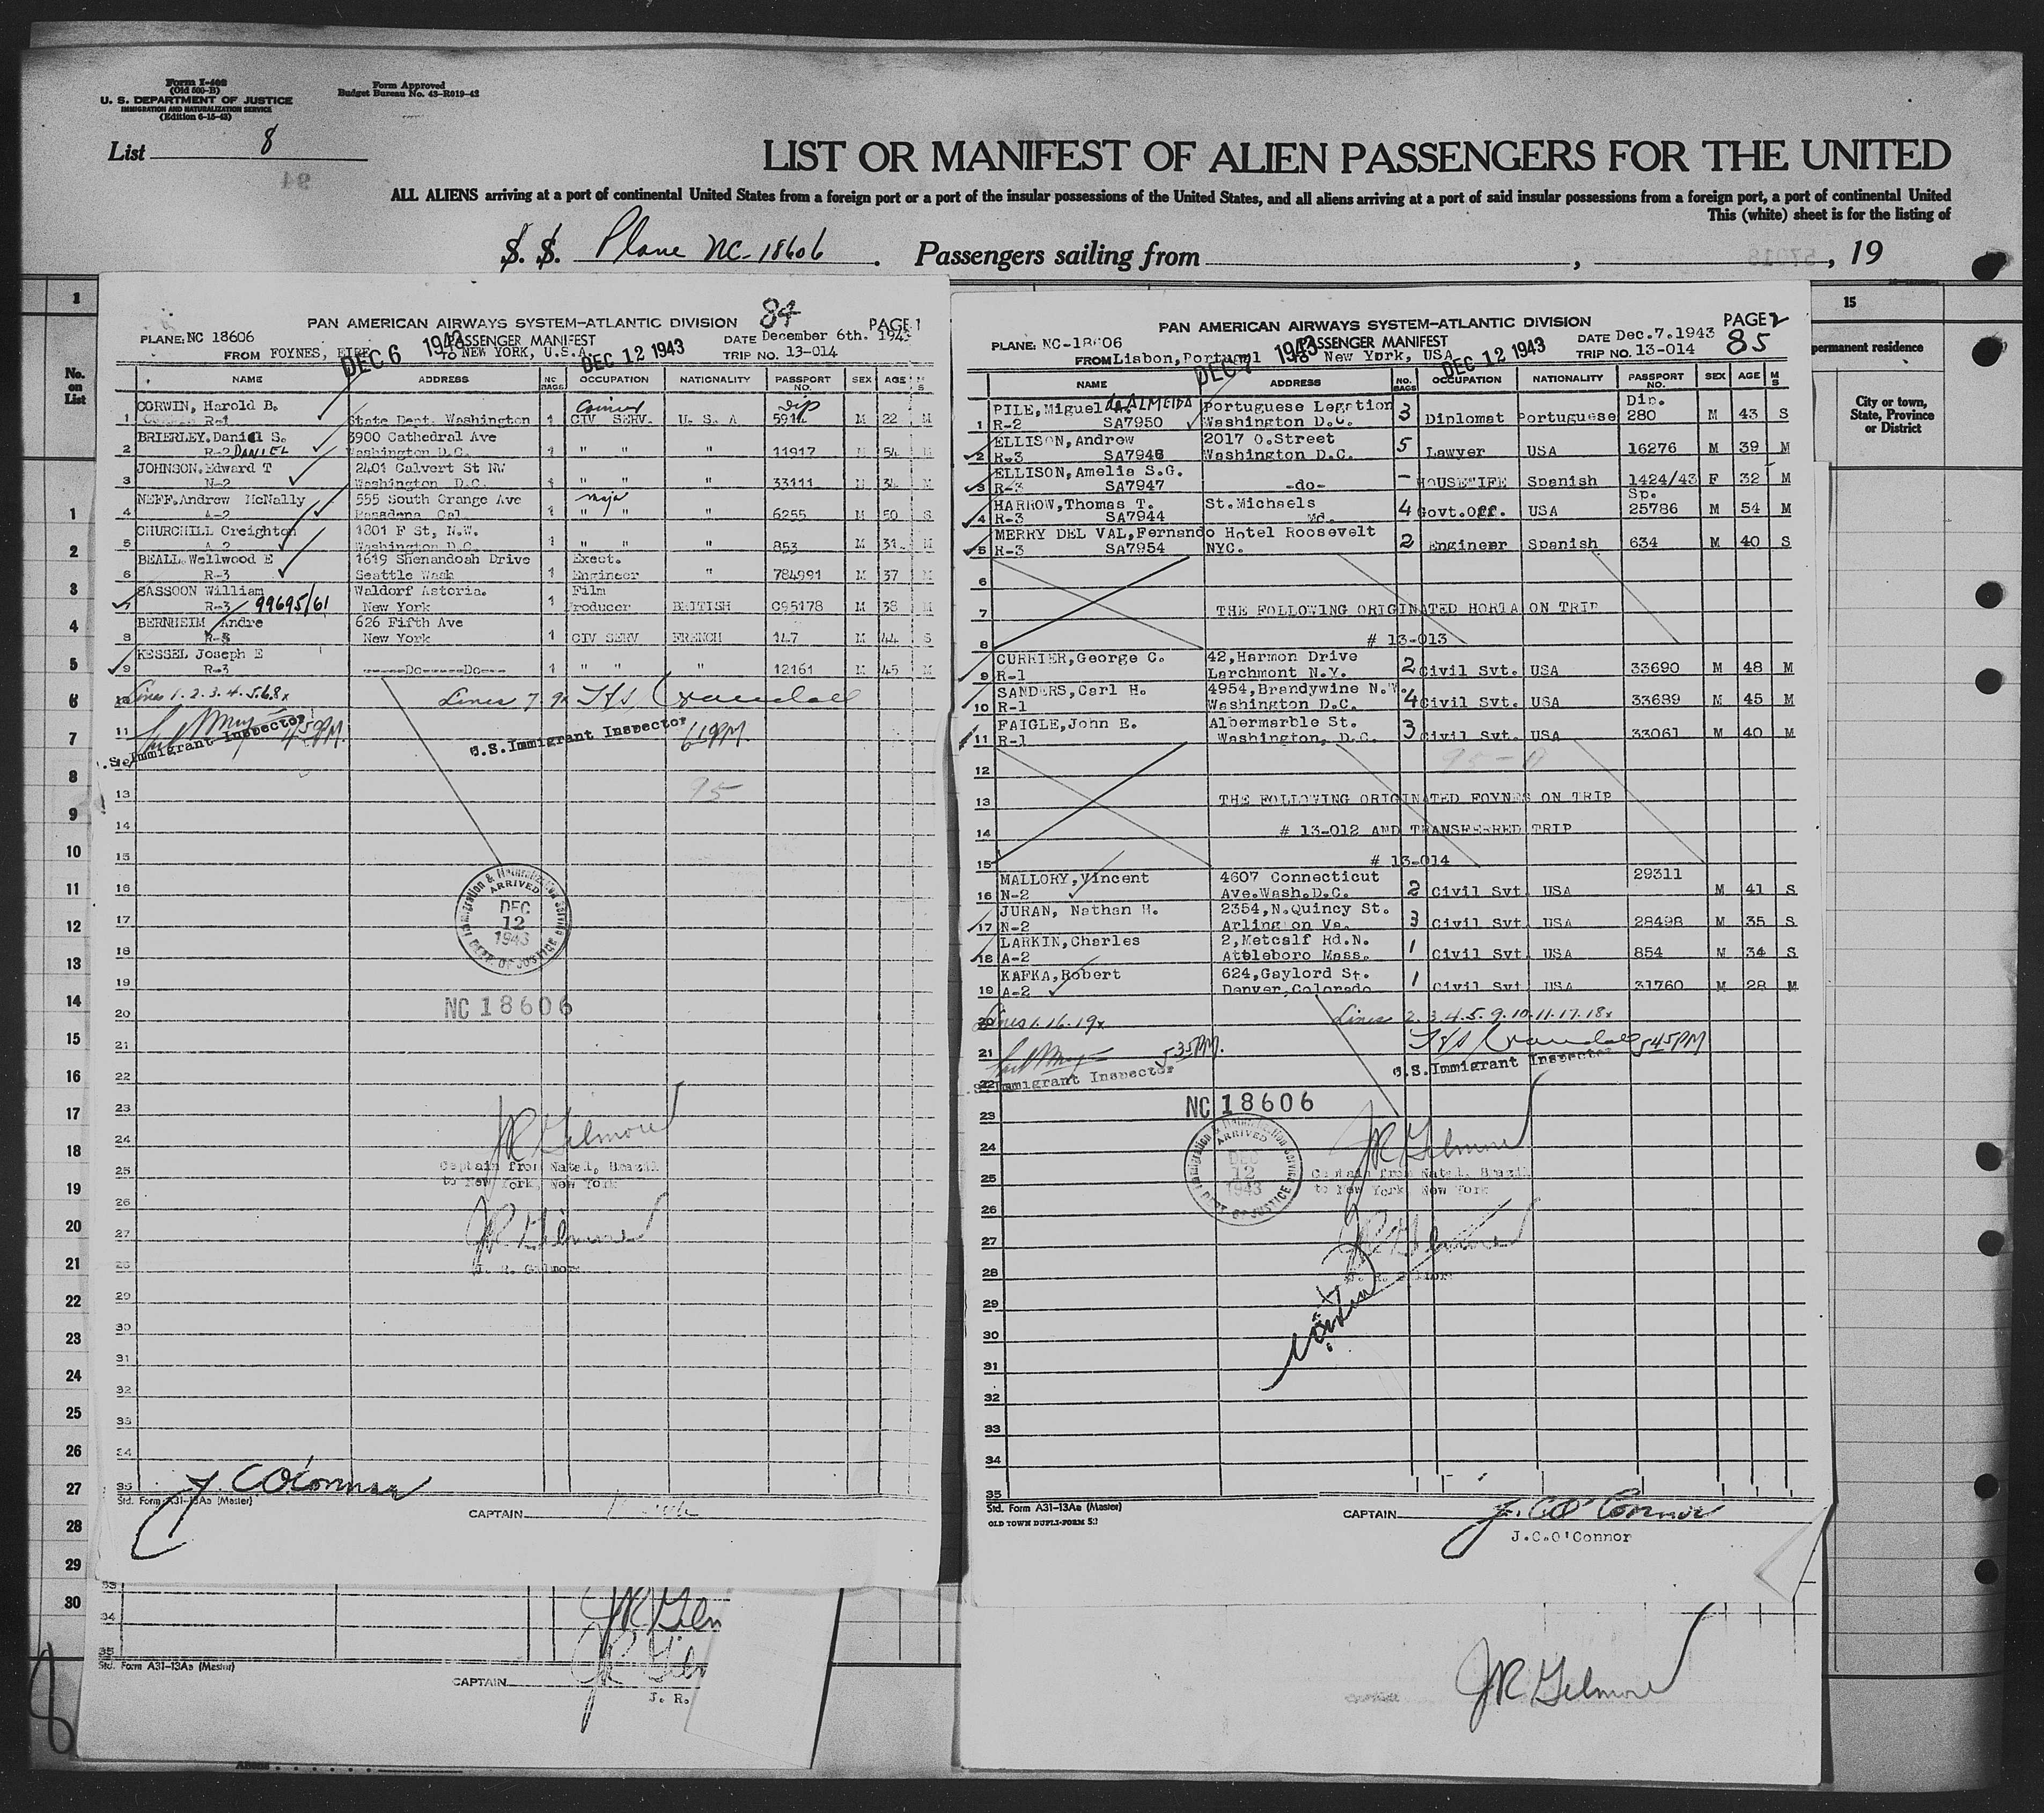 Form I-402
(Old 500-B)
U. S. DEPARTMENT OF JUSTICE
IMMIGRATION AND NATURALIZATION SERVICE
(Edition 6-15-43)
Form Approved
Budget Bureau No. 43-R019-42
List 8
LIST OR MANIFEST OF ALIEN PASSENGERS FOR THE UNITED
ALL ALIENS arriving at a port of continental United States from a foreign port or a port of the insular possessions of the United States, and all aliens arriving at a port of said insular possessions from a foreign port, a port of continental United
This (white) sheet is for the listing of
S. S. Plane NC-18606. Passengers sailing from , , 19
1
No. on List
1
2
3
4
5
6
7
8
9
10
11
12
13
14
15
16
17
18
19
20
21
22
23
24
25
26
27
28
29
30
15
permanent residence
City or town, State, Province or District
PAN AMERICAN AIRWAYS SYSTEM—ATLANTIC DIVISION 84 PAGE 1
PLANE: NC 18606 PASSENGER MANIFEST DATE December 6th. 1943
FROM FOYNES, EIRE TO NEW YORK, U.S.A. TRIP NO. 13-014
DEC 6 1943 DEC 12 1943
NAME ADDRESS NO. BAGS OCCUPATION NATIONALITY PASSPORT NO. SEX AGE M S
CORWIN, Harold B. Courier Dip
1 R-1 State Dept. Washington 1 CIV SERV. U. S. A M 22 M
BRIERLEY, Daniel S. 3900 Cathedral Ave
2 R-2 DANIEL Washington D.C. 1 " " " 11917 M 54 M
JOHNSON, Edward T 2401 Calvert St NW
3 N-2 Washington D.C. 1 " " " 33111 M 34 M
NEFF, Andrew McNally 555 South Orange Ave Major
4 A-2 Pasadena Cal 1 " " " 6255 M 50 S
CHURCHILL Creighton 1801 F St, N.W.
5 A-2 Washington D.C. 1 " " " 853 M 31 M
BEALL Wellwood E 1619 Shenandoah Drive Exect.
6 R-3 Seattle Wash 1 Engineer " 784991 M 37 M
SASSOON William Waldorf Astoria. Film
7 R-3 99695/61 New York 1 Producer BRITISH C95178 M 38 M
BERNHEIM Andre 626 Fifth Ave
8 R-3 New York 1 CIV SERV FRENCH 147 M 44 S
KESSEL Joseph E
9 R-3 -----Do-----Do--- 1 " " " 12161 M 45 M
10 Lines 1.2.3.4.5.6.8x Lines 7 9x
11 U.S. Immigrant Inspector U.S. Immigrant Inspector
12
13 95
14
15
16
17
18
19
Immigration & Naturalization Service
ARRIVED
DEC
12
1943
DEPT. OF JUSTICE
NC 18606
20
21
22
23
24
25
26
27
28
29
30
31
32
33
34
35
JR Gilmore
Captain from Natal, Brazil
to New York, New York
JR Gilmore
J. R. Gilmore
J. C O'Connor
Std. Form A31-13Aa (Master)
CAPTAIN
33
34
35
JR Gilm
JR Gilm
Std. Form A31-13Aa (Master)
CAPTAIN
J. R.
8
PAN AMERICAN AIRWAYS SYSTEM—ATLANTIC DIVISION PAGE 2
PLANE: NC-18606 PASSENGER MANIFEST DATE Dec.7.1943 85
FROM Lisbon, Portugal TO New York, USA TRIP NO. 13-014
DEC 7 1943 DEC 12 1943
NAME ADDRESS NO. BAGS OCCUPATION NATIONALITY PASSPORT NO. SEX AGE M S
PILE, Miguel d'ALMEIDA Portuguese Legation Dip.
1 R-2 SA7950 Washington D.C. 3 Diplomat Portuguese 280 M 43 S
ELLISON, Andrew 2017 O.Street
2 R-3 SA7946 Washington D.C. 5 Lawyer USA 16276 M 39 M
ELLISON, Amelia S.G.
3 R-3 SA7947 -do- - HOUSEWIFE Spanish 1424/43 F 32 M
HARROW, Thomas T. St.Michaels Sp.
4 R-3 SA7944 Md. 4 Govt.Off. USA 25786 M 54 M
MERRY DEL VAL, Fernando Hotel Roosevelt
5 R-3 SA7954 NYC. 2 Engineer Spanish 634 M 40 S
6
7 THE FOLLOWING ORIGINATED HORTA ON TRIP
8 # 13-013
CURRIER, George C. 42, Harmon Drive
9 R-1 Larchmont N.Y. 2 Civil Svt. USA 33690 M 48 M
SANDERS, Carl H. 4954, Brandywine N.W.
10 R-1 Washington D.C. 4 Civil Svt. USA 33689 M 45 M
FAIGLE, John E. Albermarble St.
11 R-1 Washington, D.C. 3 Civil Svt. USA 33061 M 40 M
12
13 THE FOLLOWING ORIGINATED FOYNES ON TRIP
14 # 13-012 AND TRANSFERRED TRIP
15 # 13-014
MALLORY, Vincent 4607 Connecticut 29311
16 N-2 Ave.Wash.D.C. 2 Civil Svt USA M 41 S
JURAN, Nathan H. 2354, N.Quincy St.
17 N-2 Arlington Va. 3 Civil Svt USA 28498 M 35 S
LARKIN, Charles 2, Metcalf Rd.N.
18 A-2 Attleboro Mass. 1 Civil Svt USA 854 M 34 S
KAFKA, Robert 624, Gaylord St.
19 A-2 Denver, Colorado 1 Civil Svt USA 31760 M 28 M
20 Lines 1.16.19x Lines 2.3.4.5.9.10.11.17.18x
21 5 35PM. 545PM
22 U.S. Immigrant Inspector U.S. Immigrant Inspector
NC 18606
23
24
25
26
27
28
29
30
31
32
33
34
35
Immigration & Naturalization Service
ARRIVED
DEC
12
1943
DEPT. OF JUSTICE
JR Gilmore
Captain from Natal, Brazil
to New York, New York
JR Gilmore
J. R. Gilmore
Std. Form A31-13Aa (Master)
OLD TOWN DUPLI-FORM 53
CAPTAIN J. C O'Connor
J.C.O'Connor
JR Gilmore